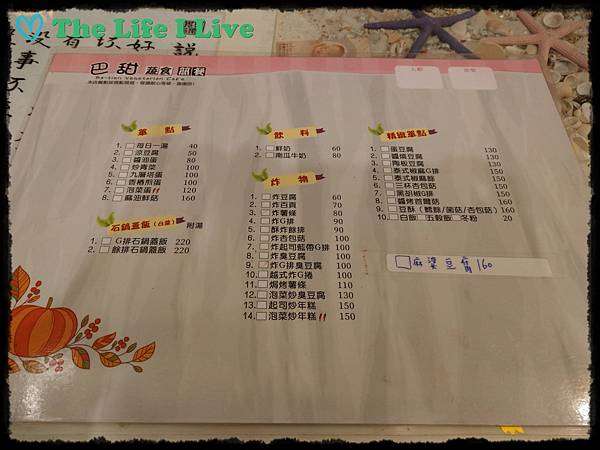 The Life I Live
沒有 好 說
事
巴甜 蔬食簡餐
Ba-tian Vegetarian Cafe
單點
1. 每日一湯 40
2. 涼豆腐 50
3. 醬油蛋 80
4. 炒青菜 100
5. 九層塔蛋 100
6. 香椿煎蛋 100
7. 泡菜蛋 120
8. 麻油鮮菇 160
石鍋蓋飯(台南) 附湯
1. G排石鍋蓋飯 220
2. 餘排石鍋蓋飯 220
飲料
1. 鮮奶 60
2. 南瓜牛奶 80
炸物
1. 炸豆腐 60
2. 炸百頁 70
3. 炸薯條 80
4. 炸G排 90
5. 酥炸餘排 90
6. 炸杏包菇 100
7. 炸起司藍帶G排 100
8. 炸臭豆腐 100
9. 炸G排臭豆腐 100
10. 越式炸G捲 100
11. 焗烤薯條 110
12. 泡菜炒臭豆腐 130
13. 起司炒年糕 150
14. 泡菜炒年糕 150
精緻單點
1. 蛋豆腐 130
2. 醬燒豆腐 130
3. 陶板豆腐 130
4. 泰式椒麻G排 150
5. 泰式椒麻餘 150
6. 三杯杏包菇 150
7. 黑胡椒G排 150
8. 醬烤首爾菇 160
9. 豆酥(鱈餘/菌菇/杏包菇) 160
10. 白飯 五穀飯 冬粉 20
麻婆豆腐 160